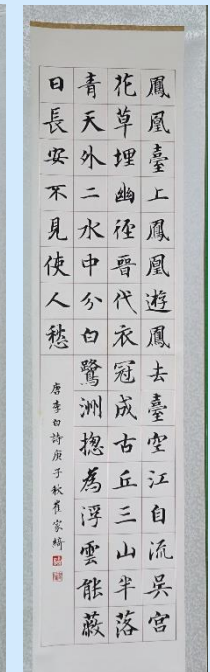 鳳凰臺上鳳凰遊鳳去臺空江自流吳宮
花草埋幽徑晉代衣冠成古丘三山半落
青天外二水中分白鷺洲揔為浮雲能蔽
日長安不見使人愁
唐李白詩庚子秋崔家綺